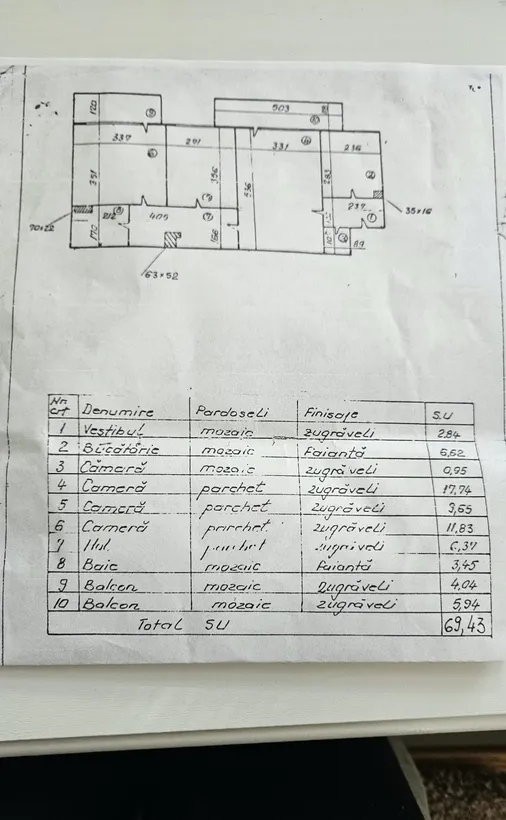 120
9
503
10
337
271
331
4
234
6
351
356
536
283
2
8
212
405
5
7
237
1
35×16
70×22
170
168
3
89
63×52
Nr. crt Denumire Pardoseli Finisaje S.U
1 Vestibul mozaic zugrăveli 2,84
2 Bucătărie mozaic Faianță 6,62
3 Cămară mozaic zugrăveli 0,95
4 Cameră parchet zugrăveli 17,74
5 Cameră parchet zugrăveli 9,65
6 Cameră parchet zugrăveli 11,83
7 Hol parchet zugrăveli 6,37
8 Baie mozaic Faianță 3,45
9 Balcon mozaic zugrăveli 4,04
10 Balcon mozaic zugrăveli 5,94
Total SU 69,43